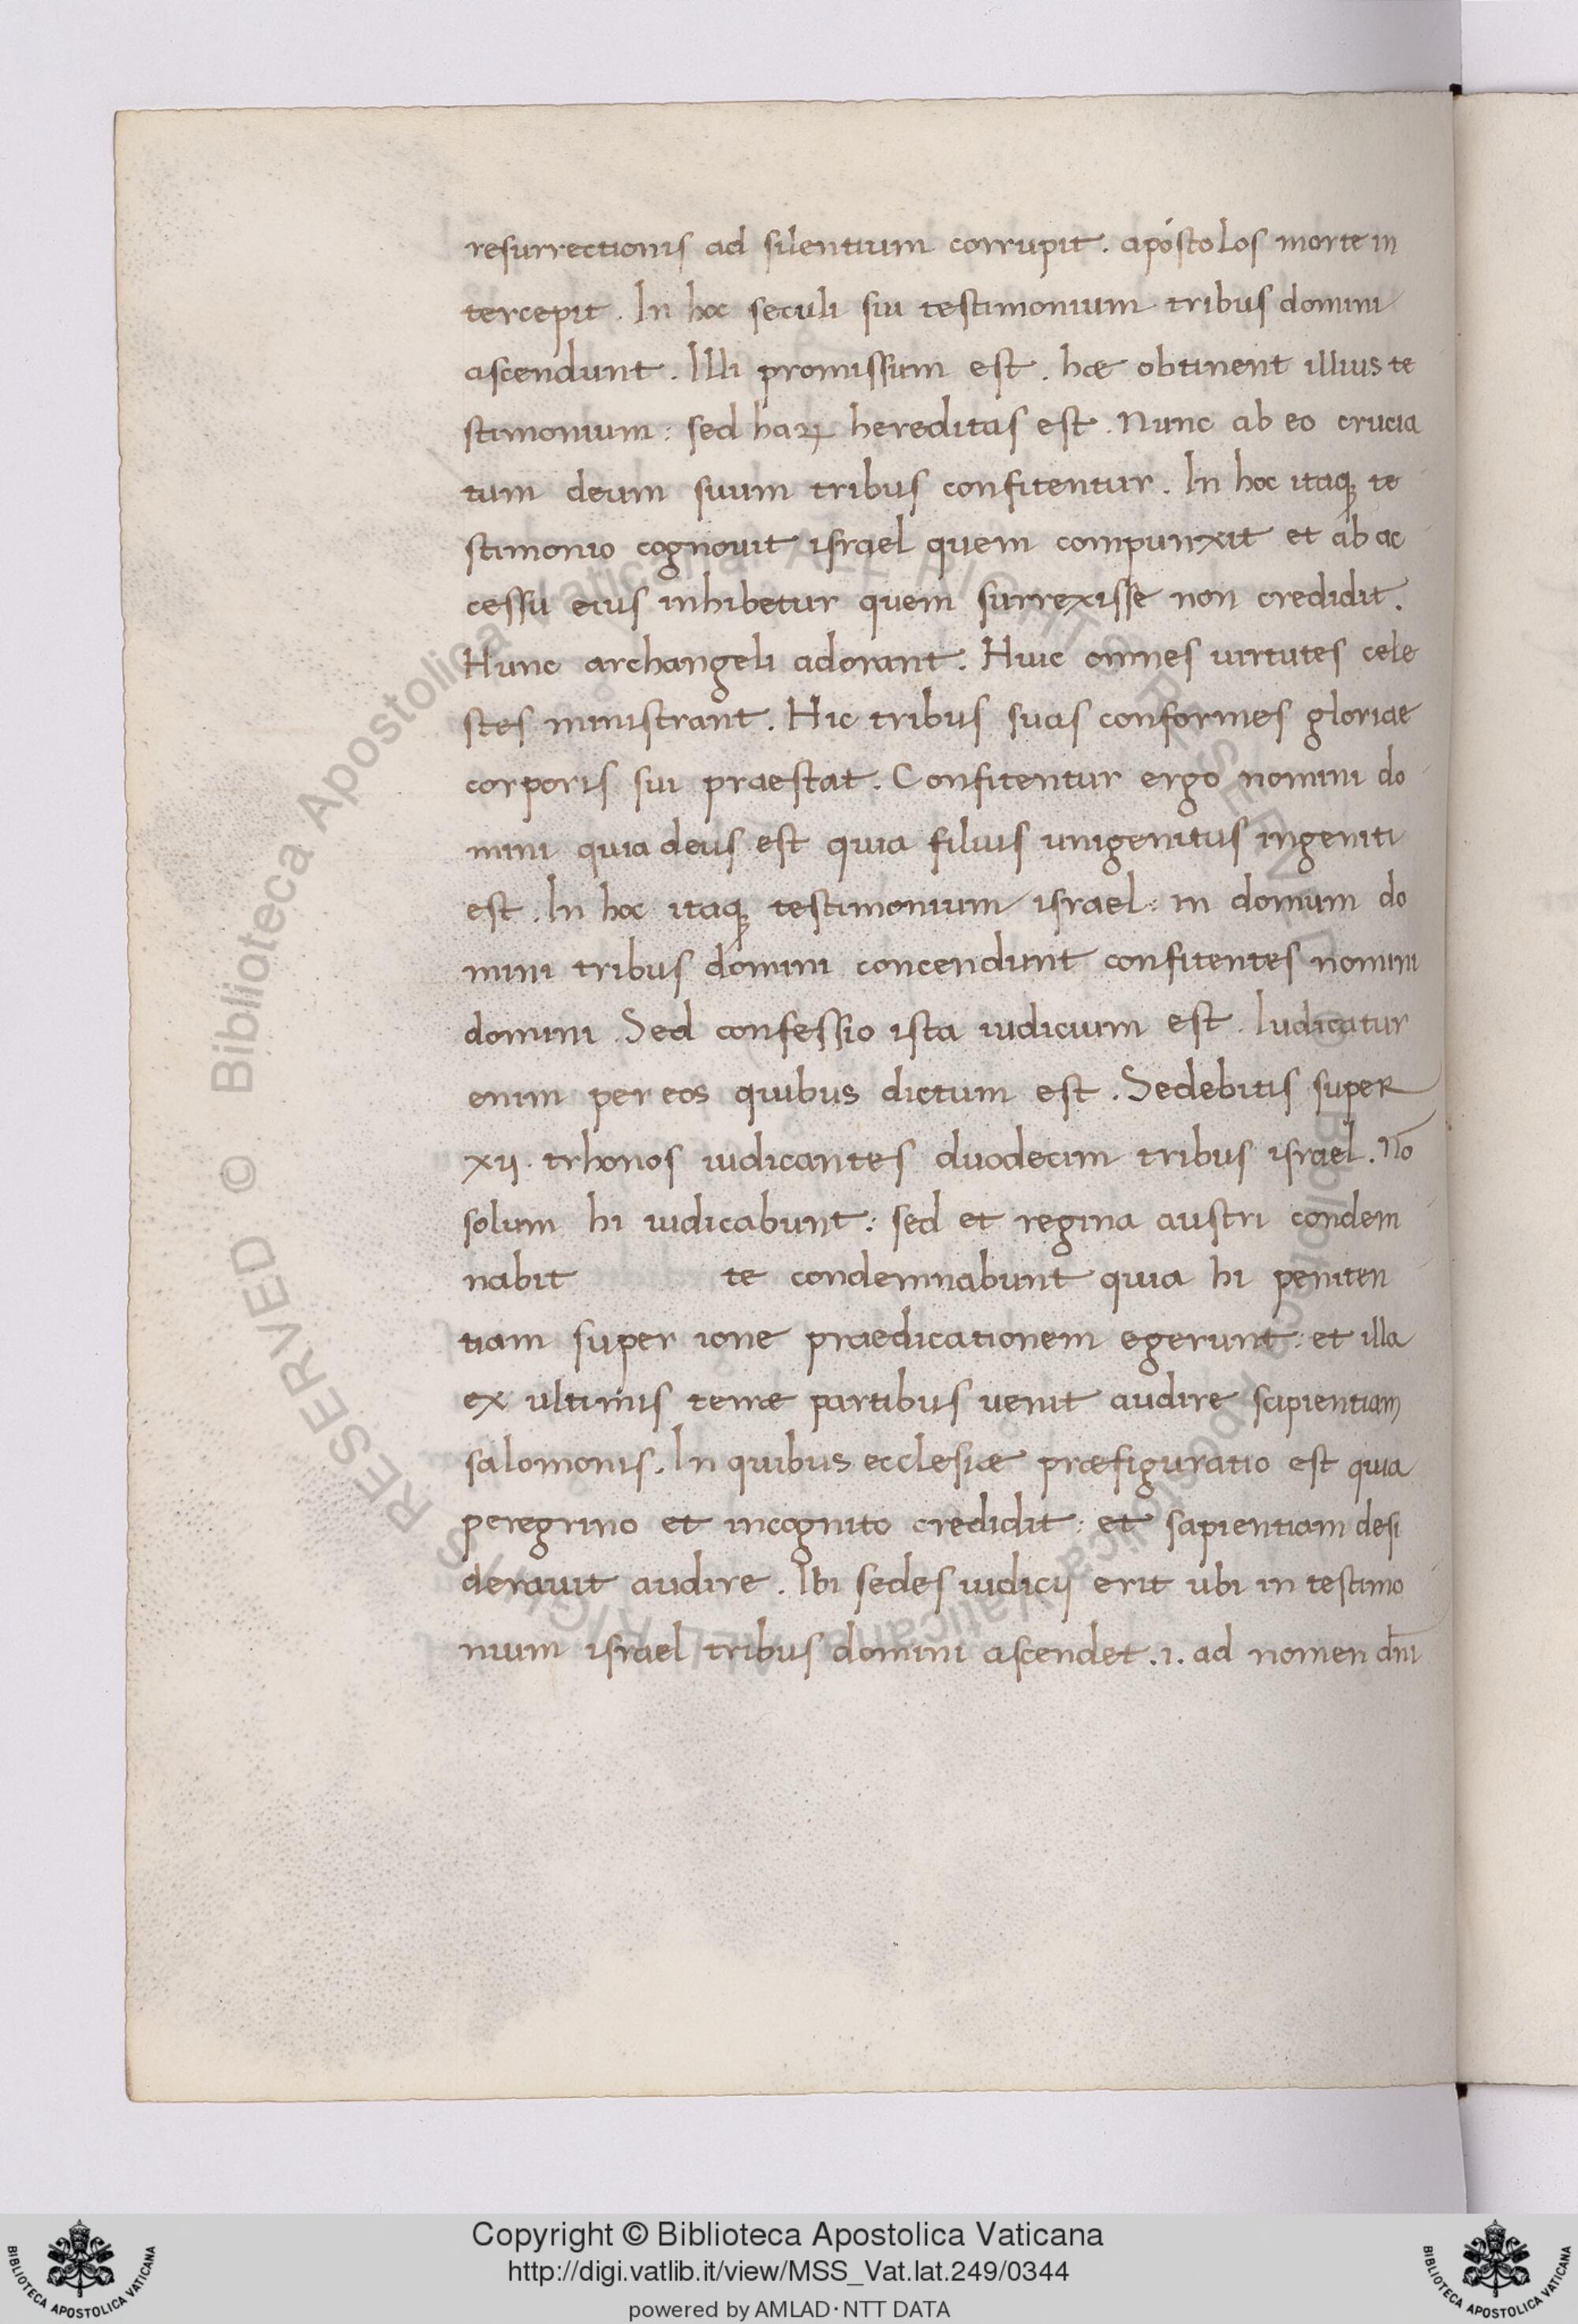 resurrectionis ad silentium corrupit. apóstolos morte in
tercepit. In hoc seculi sui testimonium tribus domini
ascendunt. Illi promissum est. hæ obtinent illius te
stimonium: sed haꝝ hereditas est. Nunc ab eo crucia
tum deum suum tribus confitentur. In hoc itaqꝫ te
stimonio cognouit israel quem compunxit et ab ac
cessu eius inhibetur quem surrexisse non credidit.
Hunc archangeli adorant. Huic omnes uirtutes cele
stes ministrant. Hic tribus suas conformes gloriae
corporis sui praestat. Confitentur ergo nomini do
mini quia deus est quia filius unigenitus ingeniti
est. In hoc itaqꝫ testimonium israel: in domum do
mini tribus domini concendunt confitentes nomini
domini. Sed confessio ista iudicium est. Iudicatur
enim per eos quibus dictum est. Sedebitis super
xij. trhonos iudicantes duodecim tribus israel. Nō
solum hi iudicabunt: sed et regina austri condem
nabit te condemnabunt quia hi peniten
tiam super ione praedicationem egerunt: et illa
ex ultimis terræ partibus uenit audire sapientiam
salomonis. In quibus ecclesiæ præfiguratio est quia
peregrino et incognito credidit: et sapientiam desi
derauit audire. Ibi sedes iudicij erit ubi in testimo
nium israel tribus domini ascendet. i. ad nomen dn̄i
© Biblioteca Apostolica Vaticana ALL RIGHTS RESERVED
Copyright © Biblioteca Apostolica Vaticana
http://digi.vatlib.it/view/MSS_Vat.lat.249/0344
powered by AMLAD·NTT DATA
BIBLIOTECA APOSTOLICA VATICANA
BIBLIOTECA APOSTOLICA VATICANA